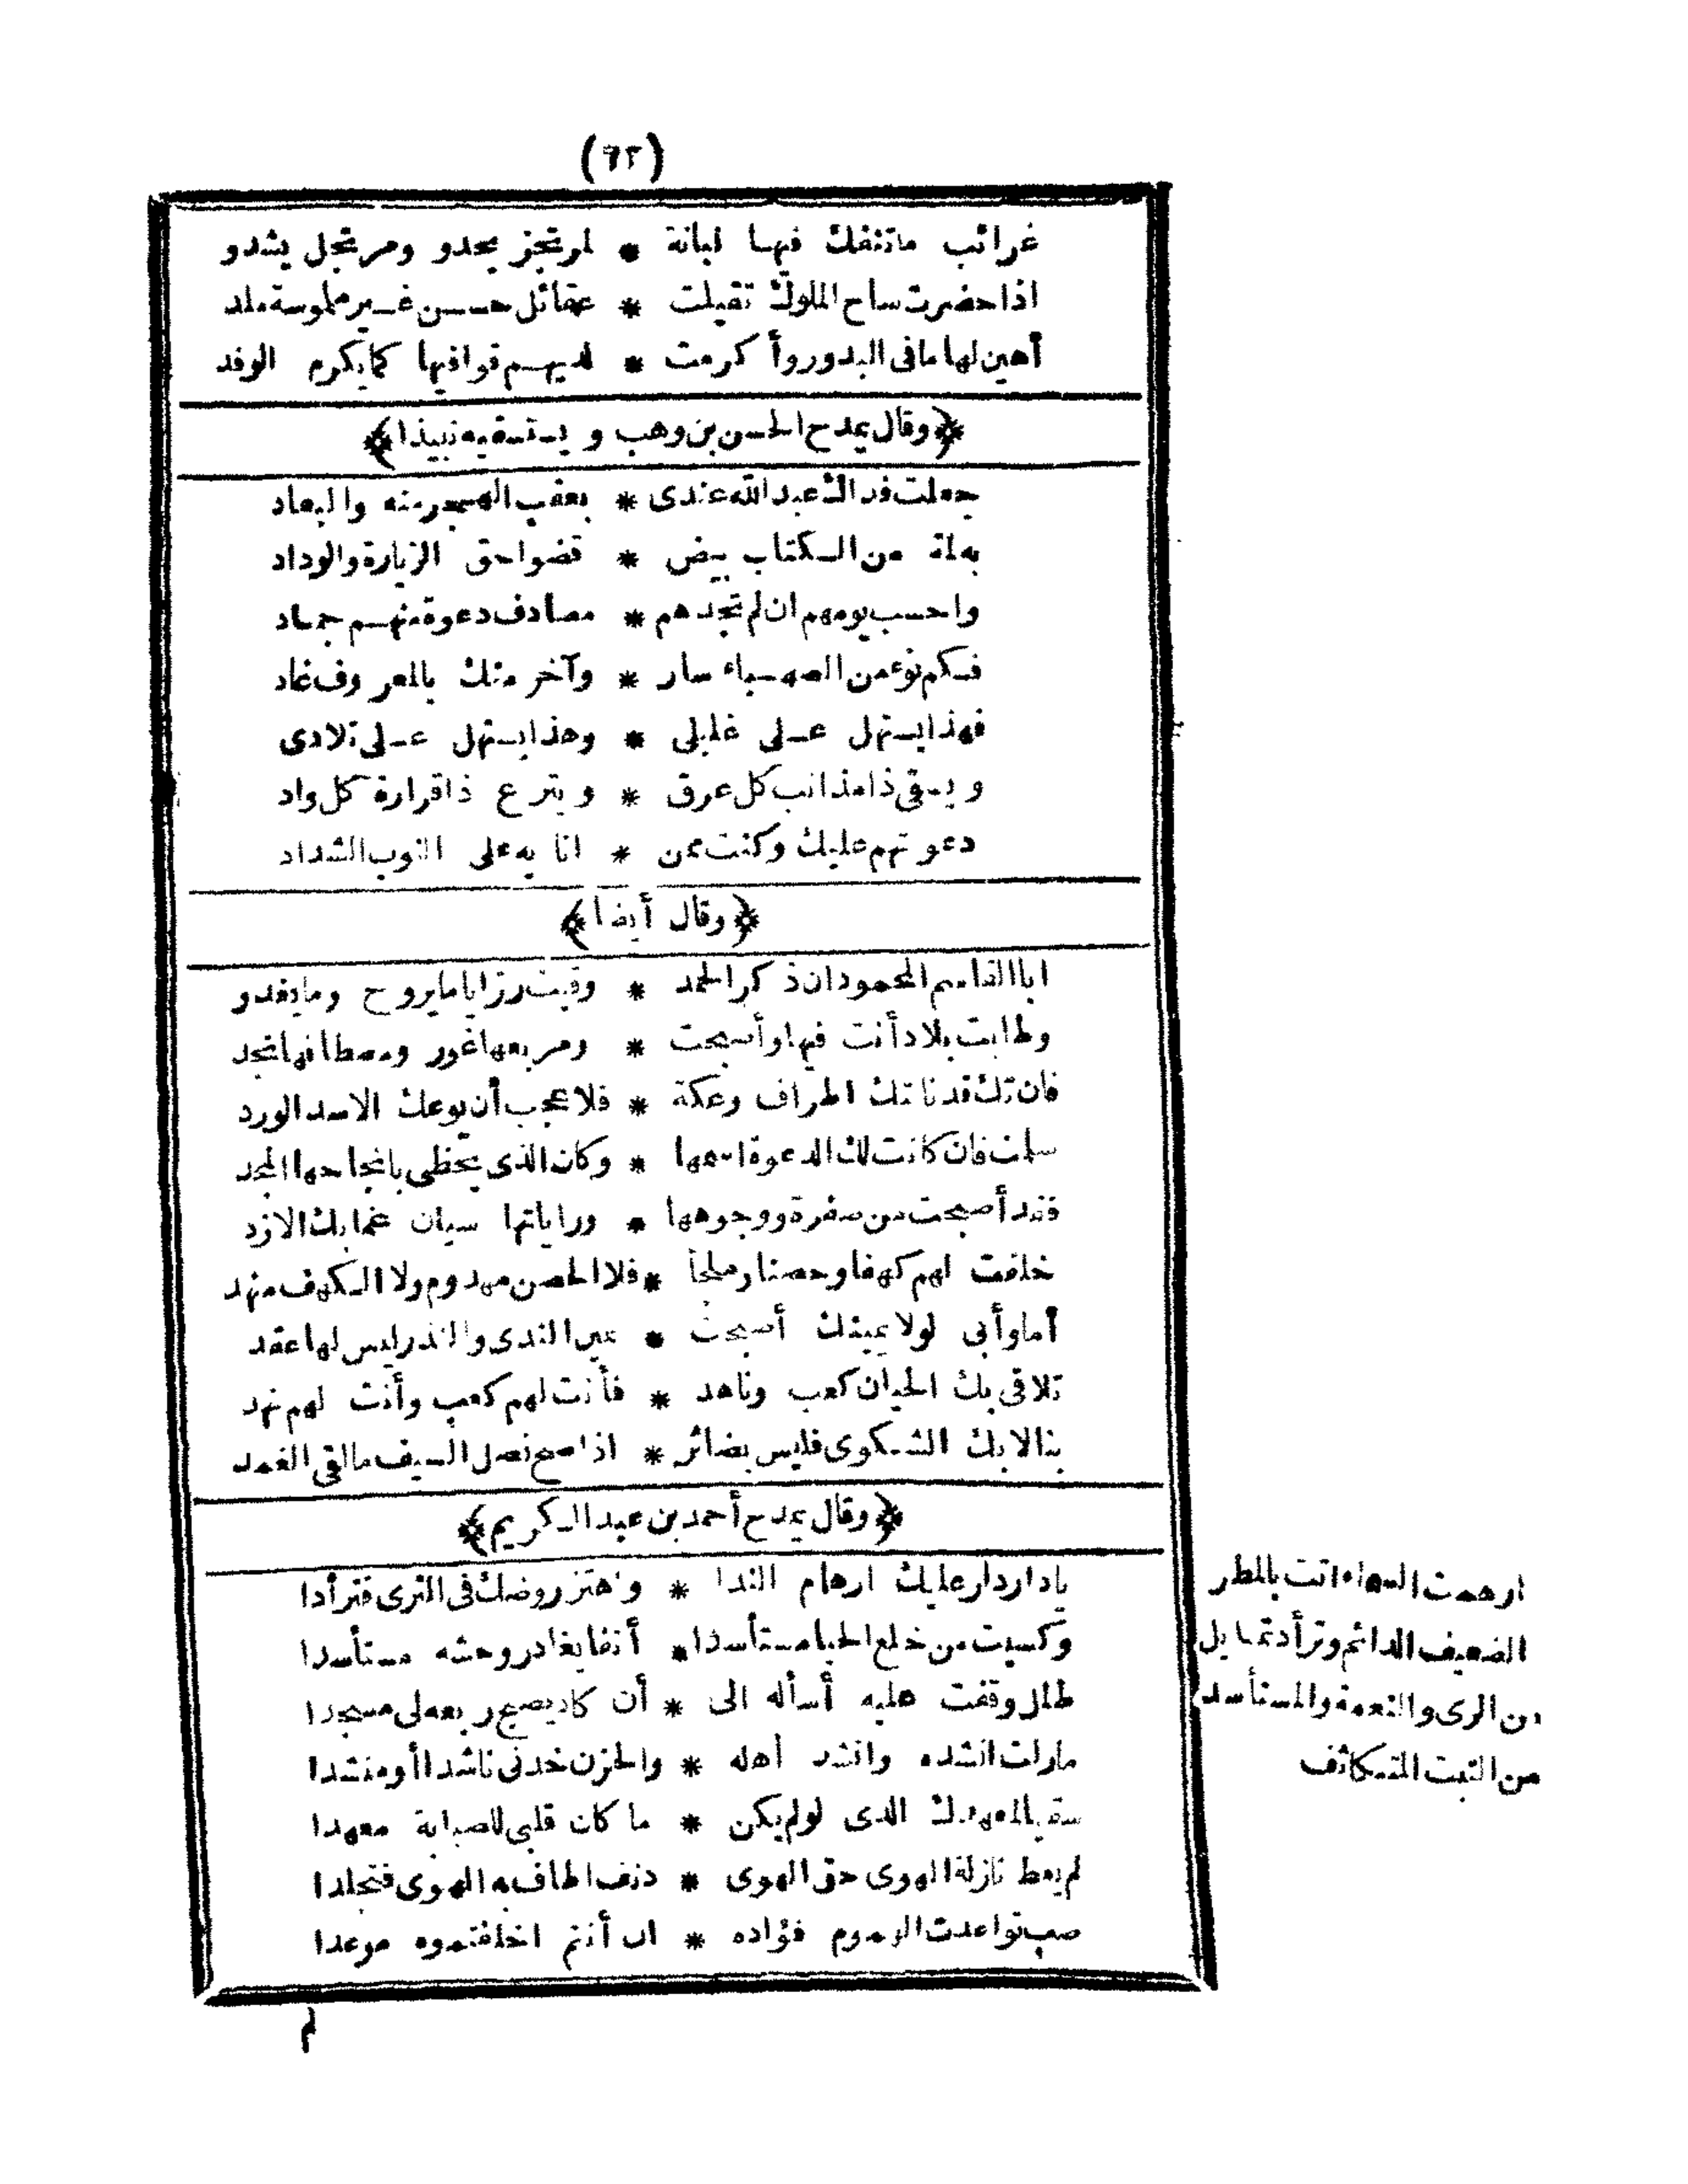 (٩٢)
غرائب ماتنفك فيها لبانة * لمرتجز يحدو ومرتجل يشدو
اذا حضرت ساح الملوك تقبلت * عقائل حسن غير ملموسة ملد
أهين لها ما فى البدور وأكرمت * لديهم قوافيها كما يكرم الوفد
﴿وقال يمدح الحسن بن وهب ويستسقيه نبيذا﴾
جعلت فداك عبد الله عندى * بعقب الهجر منه والبعاد
به لمة من الكتاب بيض * قضوا حق الزيارة والوداد
واحسب يومهم ان لم تجدهم * مصادف دعوة منهم جماد
فكم نوء من الصهباء سار * وآخر منك بالمعروف غاد
فهذا يستهل على غليلى * وهذا يستهل على تلادى
ويسقى ذا مذانب كل عرق * ويترع ذا قرارة كل واد
دعوتهم عليك وكنت ممن * انا به على النوب الشداد
﴿وقال أيضا﴾
ابا القاسم المحمود ان ذكر الحمد * وقيت رزايا ما يروح وما يغدو
وطابت بلاد أنت فيها وأصبحت * ومربعها غور ومصطافها نجد
فان تك قد نالتك اطراف وعكة * فلا عجب أن يوعك الاسد الورد
سلمت فان كانت لك الدعوة اسمها * وكان الذى يحظى بانجاحها المجد
فقد أصبحت من صفرة ووجوهها * وراياتها سيان غما بك الازد
خلفت لهم كهفا وحصنا وملجأ * فلا الحصن مهدوم ولا الكهف منهد
أما وأبى لولا يمينك أصبحت * يمين الندى والنذر ليس لها عقد
تلاقى بك الحيان كعب وناهد * فأنت لهم كعب وأنت لهم نهد
بنا لا بك الشكوى فليس بضائر * اذا صح نصل السيف مالقى الغمد
﴿وقال يمدح أحمد بن عبد الكريم﴾
يادار دار عليك ارهام الندا * واهتز روضك فى الثرى فترأدا
وكسيت من خلع الحيا مستأسدا * أنفا يغادر وحشه مستأسدا
طلل وقفت عليه أسأله الى * أن كاد يصبح ربعه لى مسجدا
مازلت انشده وانشد أهله * والحزن خدنى ناشدا أو منشدا
سقيا لمعهدك الذى لولم يكن * ما كان قلبى للصبابة معهدا
لم يعط نازلة الهوى حق الهوى * دنف اطاف به الهوى فتجلدا
صب تواعدت الهموم فؤاده * ان أنتم اخلفتموه موعدا
ارهمت السماء اتت بالمطر
الضعيف الدائم وترأد تمايل
من الرى والنعمة والمستأسد
من النبت المتكاثف
لم